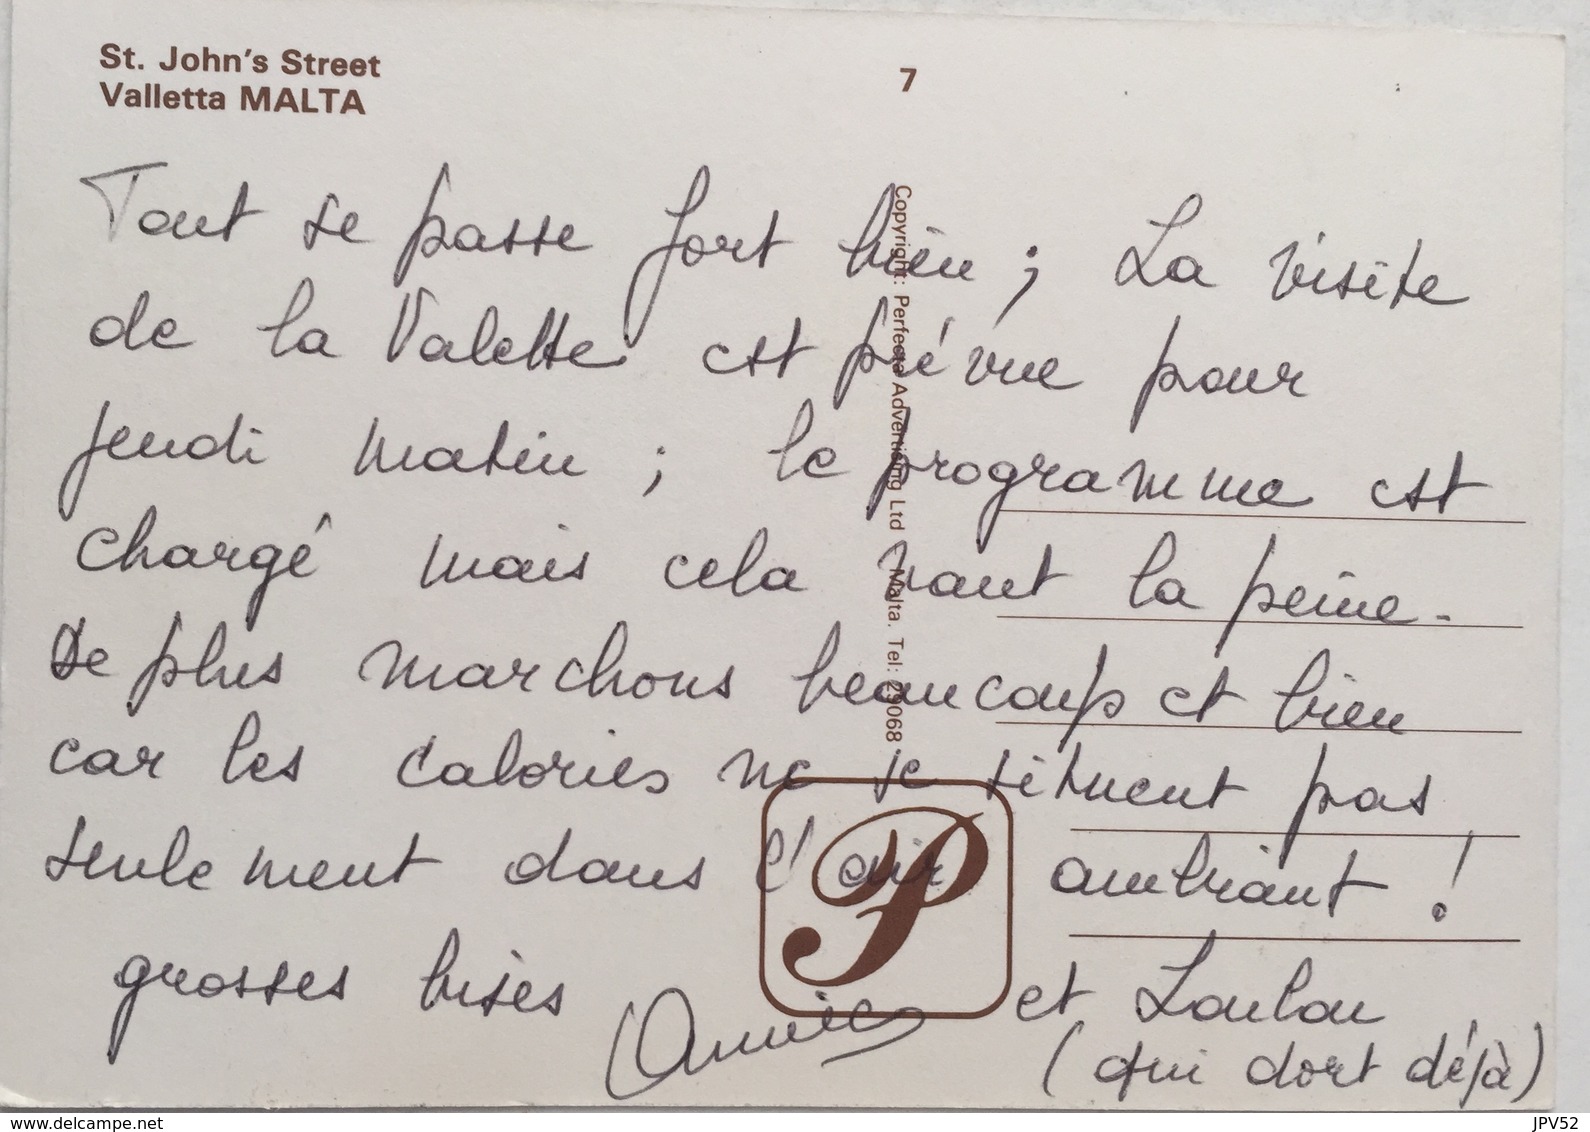 St. John's Street
Valletta MALTA
7
Copyright: Perfecta Advertising Ltd Malta. Tel: 29068
Tout se passe fort bien ; La visite
de la Valette est prévue pour
jeudi matin ; le programme est
chargé mais cela vaut la peine.
De plus marchons beaucoup et bien
car les calories ne se situent pas
seulement dans l'air ambiant !
grosses bises Annie et Loulou
(qui dort déjà)
P
www.delcampe.net
JPV52